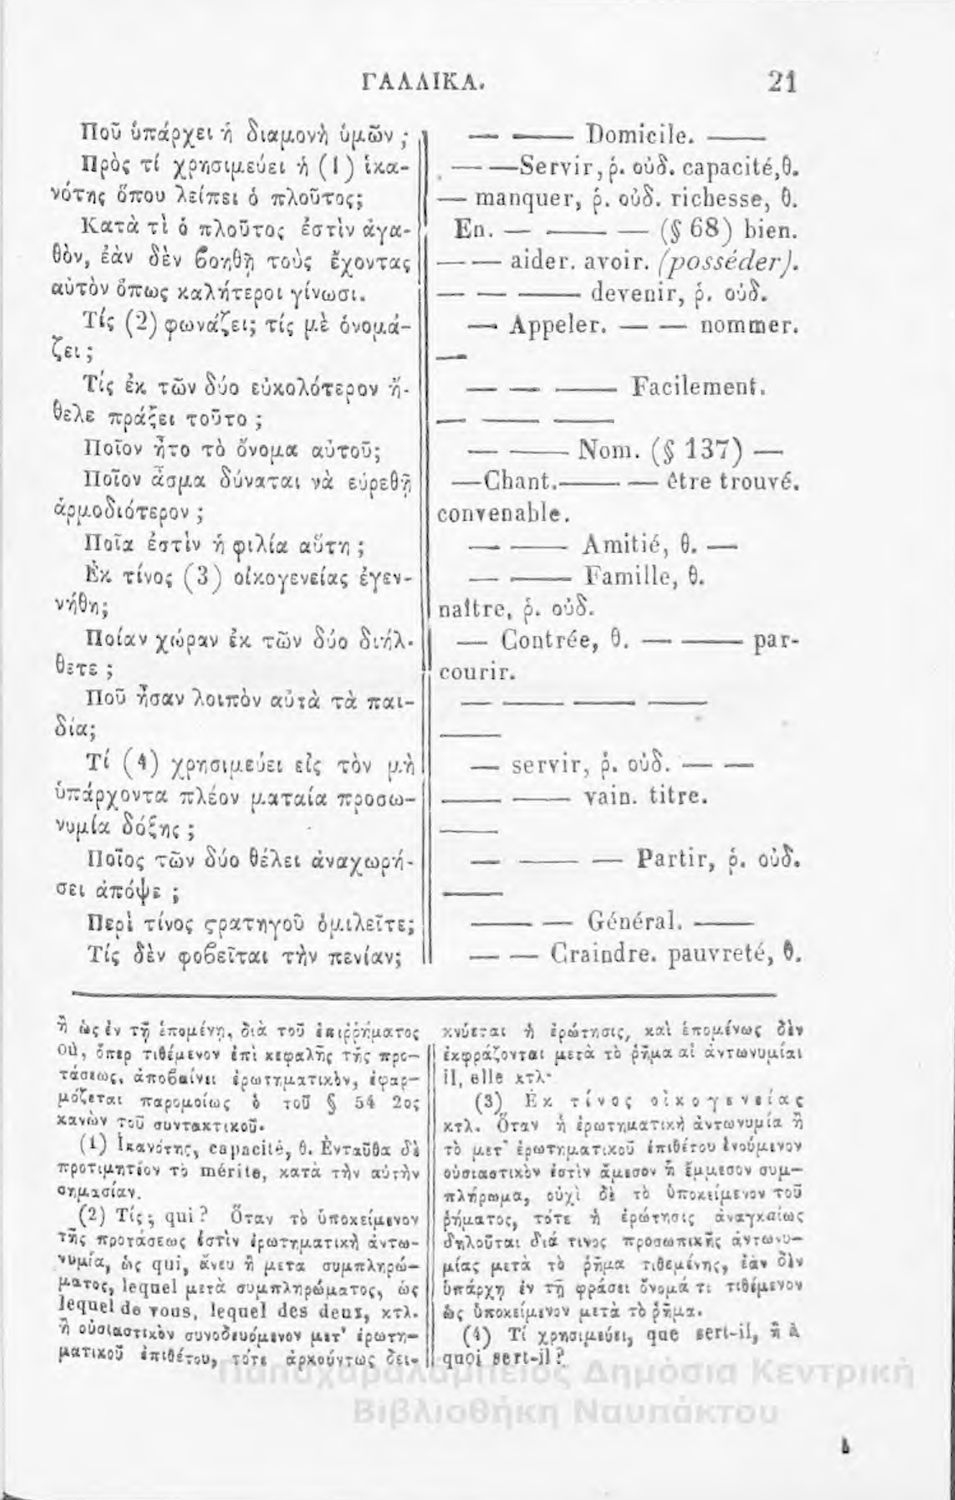 ΓΑΛΛΙΚΑ. 21
Ποῦ ὑπάρχει ἡ διαμονὴ ὑμῶν ;
Πρὸς τί χρησιμεύει ἡ (1) ἱκα-
νότης ὅπου λείπει ὁ πλοῦτος;
Κατὰ τὶ ὁ πλοῦτος ἐστὶν ἀγα-
θὸν, ἐὰν δὲν βοηθῇ τοὺς ἔχοντας
αὐτὸν ὅπως καλήτεροι γίνωσι.
Τίς (2) φωνάζει; τίς μὲ ὀνομά-
ζει ;
Τίς ἐκ τῶν δύο εὐκολότερον ἤ-
θελε πράξει τοῦτο ;
Ποῖον ἦτο τὸ ὄνομα αὐτοῦ;
Ποῖον ἆσμα δύναται νὰ εὑρεθῇ
ἁρμοδιότερον ;
Ποία ἐστὶν ἡ φιλία αὕτη ;
Ἐκ τίνος (3) οἰκογενείας ἐγεν-
νήθη;
Ποίαν χώραν ἐκ τῶν δύο διήλ-
θετε ;
Ποῦ ἦσαν λοιπὸν αὐτὰ τὰ παι-
δία;
Τί (4) χρησιμεύει εἰς τὸν μὴ
ὑπάρχοντα πλέον ματαία προσω-
νυμία δόξης ;
Ποῖος τῶν δύο θέλει ἀναχωρή-
σει ἀπόψε ;
Περὶ τίνος ϛρατηγοῦ ὁμιλεῖτε;
Τίς δὲν φοβεῖται τὴν πενίαν;
— —— Domicile. ——
— ——Servir, ῥ. οὐδ. capacité, θ.
— manquer, ῥ. οὐδ. richesse, θ.
En. — —— — (§ 68) bien.
— — aider. avoir. (posséder).
— — —— devenir, ῥ. οὐδ.
— Appeler. — — nommer.
—
— — —— Facilement.
— —— ——
— —— Nom. (§ 137) —
—Chant.—— — être trouvé.
convenable.
— —— Amitié, θ. —
— —— Famille, θ.
naître, ῥ. οὐδ.
— Contrée, θ. — —— par-
courir.
— —— —— ——
——
— servir, ῥ. οὐδ. — —
—— —— vain. titre.
——
— —— — Partir, ῥ. οὐδ.
——
—— — Général. ——
— — Craindre. pauvreté, θ.
ἢ ὡς ἐν τῇ ἑπομένῃ, διὰ τοῦ ἐπιῤῥήματος
où, ὅπερ τιθέμενον ἐπὶ κεφαλῆς τῆς προ-
τάσεως, ἀποβαίνει ἐρωτηματικὸν, ἐφαρ-
μόζεται παρομοίως ὁ τοῦ § 54 2ος
κανὼν τοῦ συντακτικοῦ.
(1) Ἱκανότης, capacité, θ. Ἐνταῦθα δὲ
προτιμητέον τὸ mérite, κατὰ τὴν αὐτὴν
σημασίαν.
(2) Τίς; qui ? Ὅταν τὸ ὑποκείμενον
τῆς προτάσεως ἐστὶν ἐρωτηματικὴ ἀντω-
νυμία, ὡς qui, ἄνευ ἢ μετα συμπληρώ-
ματος, lequel μετὰ συμπληρώματος, ὡς
lequel de vous, lequel des deux, κτλ.
ἢ οὐσιαστικὸν συνοδευόμενον μετ' ἐρωτη-
ματικοῦ ἐπιθέτου, τότε ἀρκούντως δει-
κνύεται ἡ ἐρώτησις, καὶ ἑπομένως δὲν
ἐκφράζονται μετὰ τὸ ῥῆμα αἱ ἀντωνυμίαι
il, elle κτλ·
(3) Ἐκ τίνος οἰκογενείας
κτλ. Ὅταν ἡ ἐρωτηματικὴ ἀντωνυμία ἢ
τὸ μετ' ἐρωτηματικοῦ ἐπιθέτου ἑνούμενον
οὐσιαστικὸν ἐστὶν ἄμεσον ἢ ἔμμεσον συμ-
πλήρωμα, οὐχὶ δὲ τὸ ὑποκείμενον τοῦ
ῥήματος, τότε ἡ ἐρώτησις ἀναγκαίως
δηλοῦται διά τινος προσωπικῆς ἀντωνυ-
μίας μετὰ τὸ ῥῆμα τιθεμένης, ἐὰν δὲν
ὑπάρχῃ ἐν τῇ φράσει ὄνομά τι τιθέμενον
ὡς ὑποκείμενον μετὰ τὸ ῥῆμα.
(4) Τί χρησιμεύει, que sert-il, ἢ à
quoi sert-il ?
Παπαχαραλάμπειος Δημόσια Κεντρική
Βιβλιοθήκη Ναυπάκτου